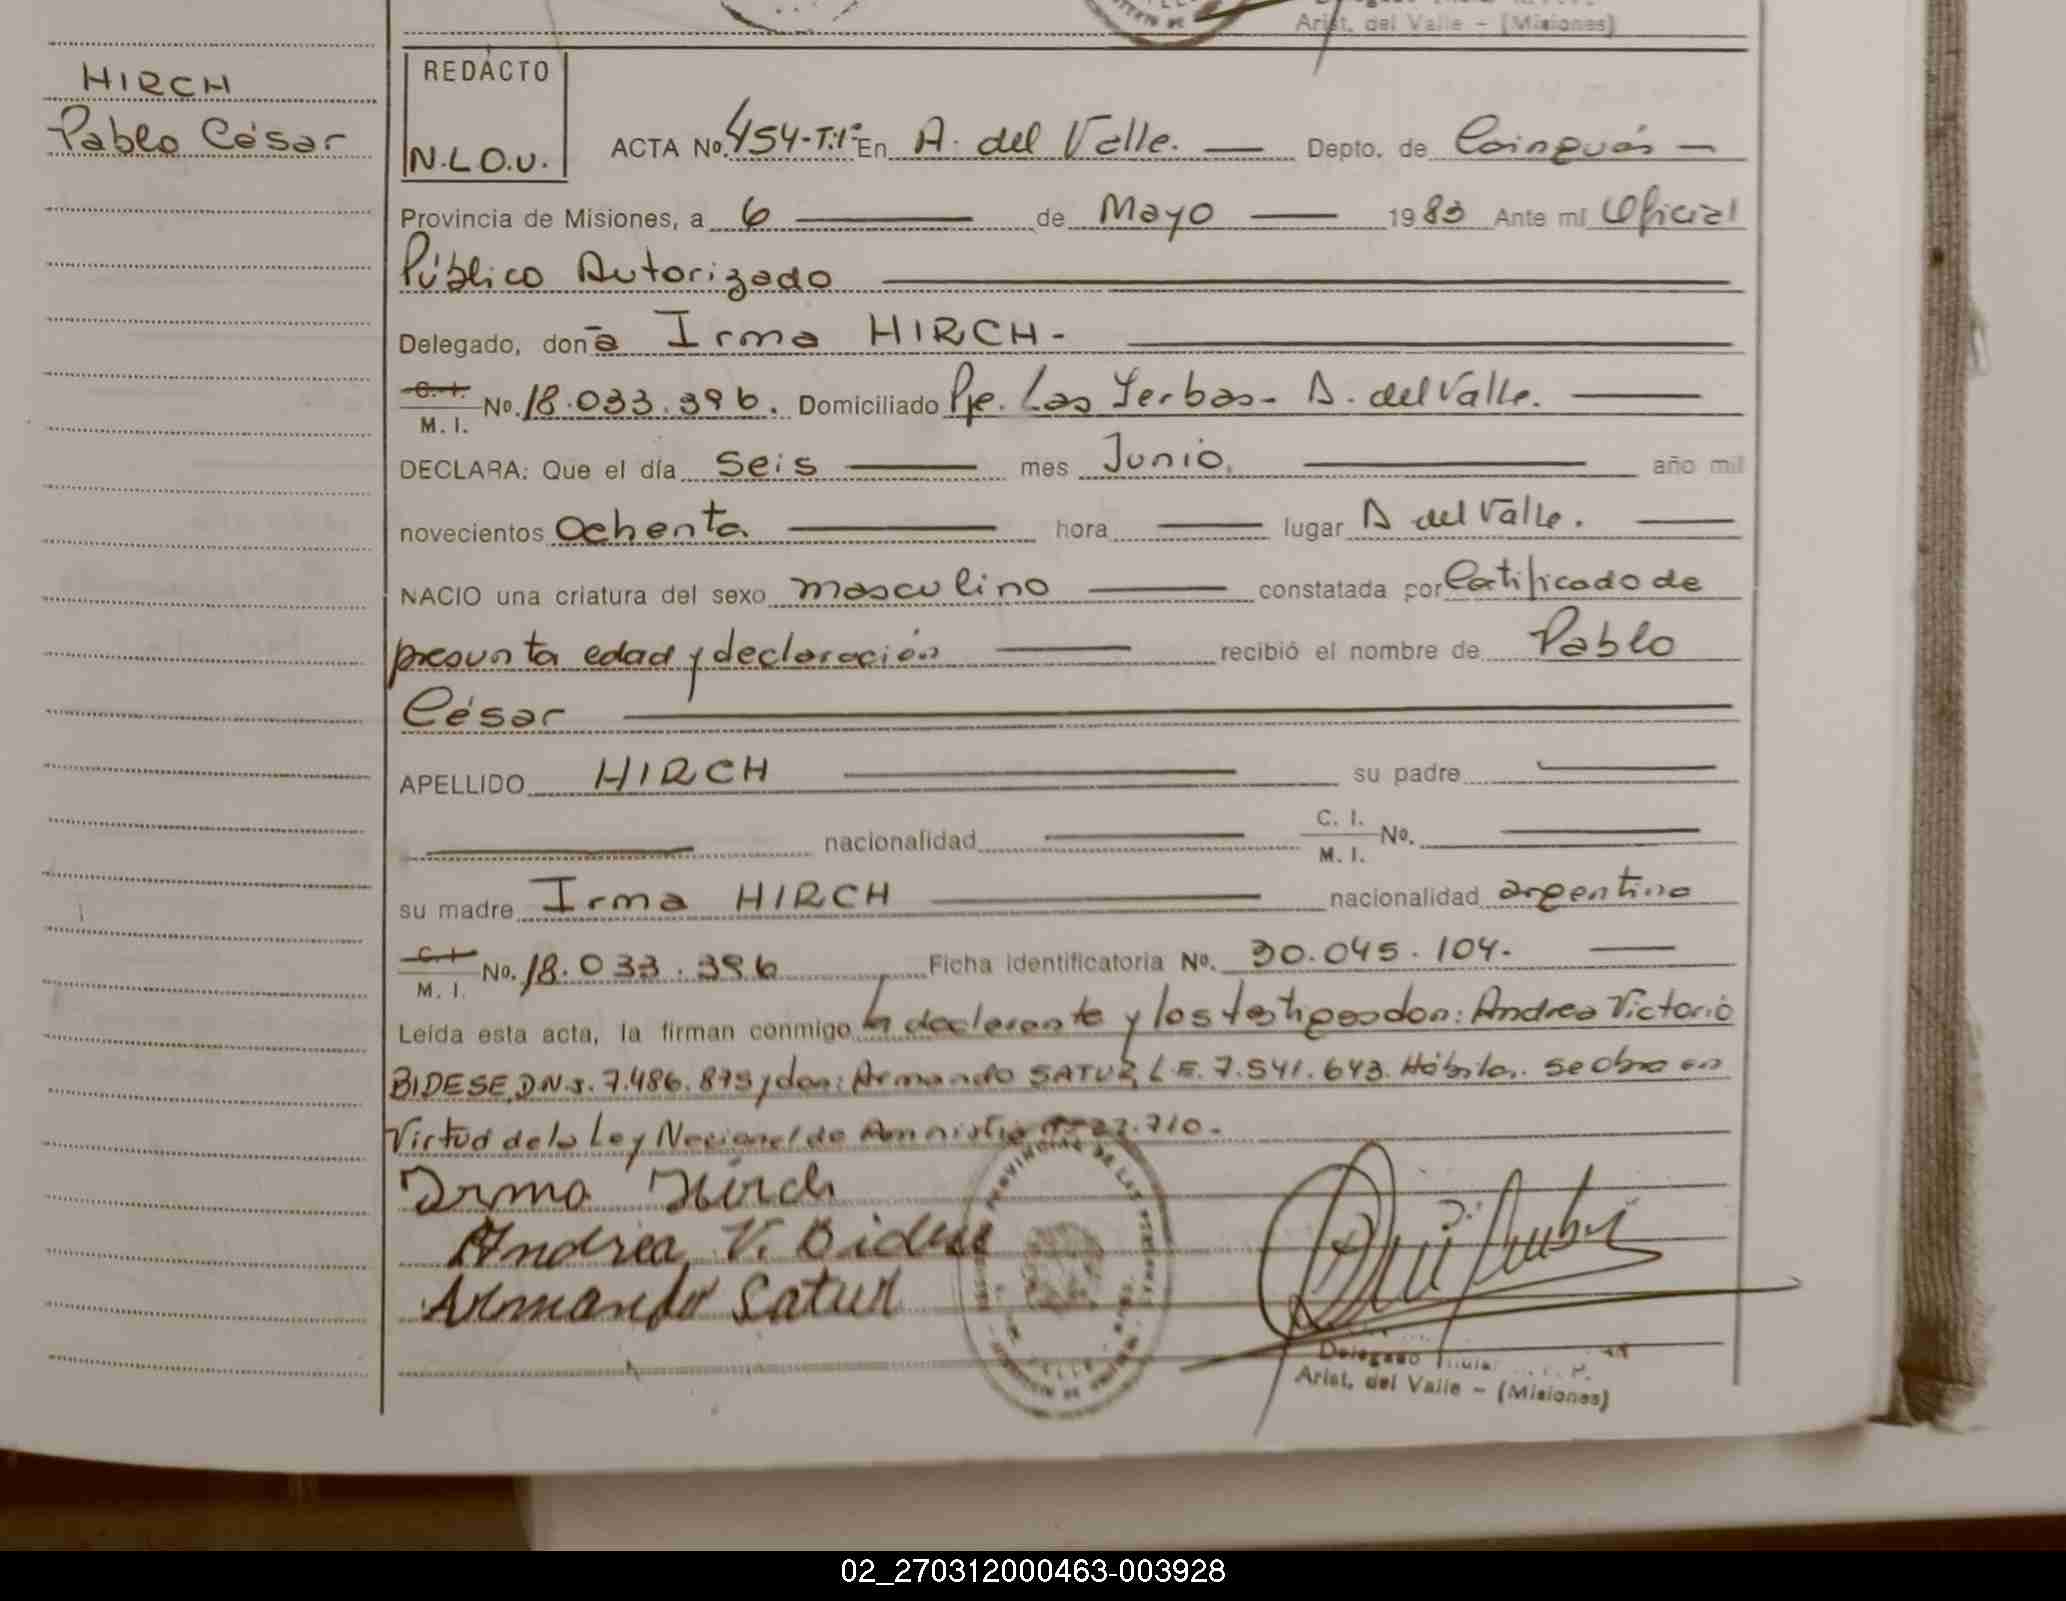 Arist. del Valle - (Misiones)
HIRCH
Pablo César
REDACTO
N.L.O.U.
ACTA No. 454-T:1º En A. del Valle. Depto. de Cainguás
Provincia de Misiones, a 6 de Mayo 1983 Ante mí Oficial
Público Autorizado
Delegado, doña Irma HIRCH-
C.I. M.I. No. 18.033.396. Domiciliado Pje. Las Yerbas- A. del Valle.
DECLARA: Que el día Seis mes Junio, año mil
novecientos Ochenta hora lugar A del Valle.
NACIO una criatura del sexo masculino constatada por Certificado de
presunta edad y declaración recibió el nombre de Pablo
César
APELLIDO HIRCH su padre
nacionalidad C. I. M. I. No.
su madre Irma HIRCH nacionalidad argentina
C.I. M. I. No. 18.033.396 Ficha identificatoria No. 30.045.104.
Leída esta acta, la firman conmigo la declarante y los testigos don: Andrea Victorio
BIDESE, D.N.I. 7.486.875 y don: Armando SATUR, L.E. 7.541.643. Hábiles. Se obra en
Virtud de la Ley Nacional de Amnistía Nº 22.710.
Irma Hirch
Andrea V. Bidese
Armando Satur
PROVINCIAS DE LAS
Delegado Titular
Arist. del Valle - (Misiones)
02_270312000463-003928